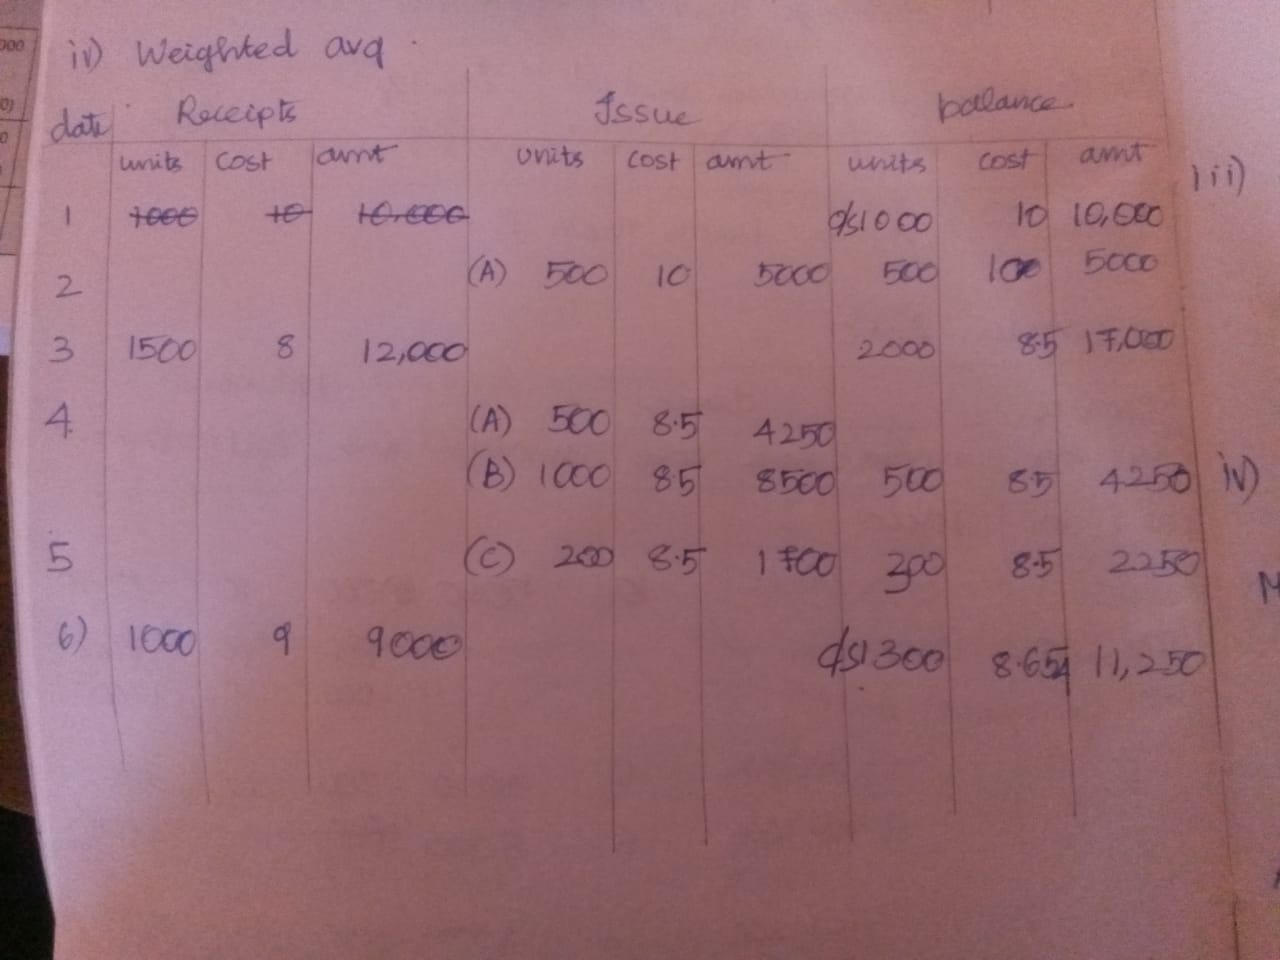 iv) Weighted avg.
date Receipts Issue balance
units cost amt units cost amt units cost amt
1 1000 10 10,000 o/s 1000 10 10,000
2 (A) 500 10 5000 500 10 5000
3 1500 8 12,000 2000 8.5 17,000
4 (A) 500 8.5 4250
(B) 1000 8.5 8500 500 8.5 4250
5 (C) 200 8.5 1700 300 8.5 2250
6) 1000 9 9000 c/s 1300 8.654 11,250
iii)
iv)